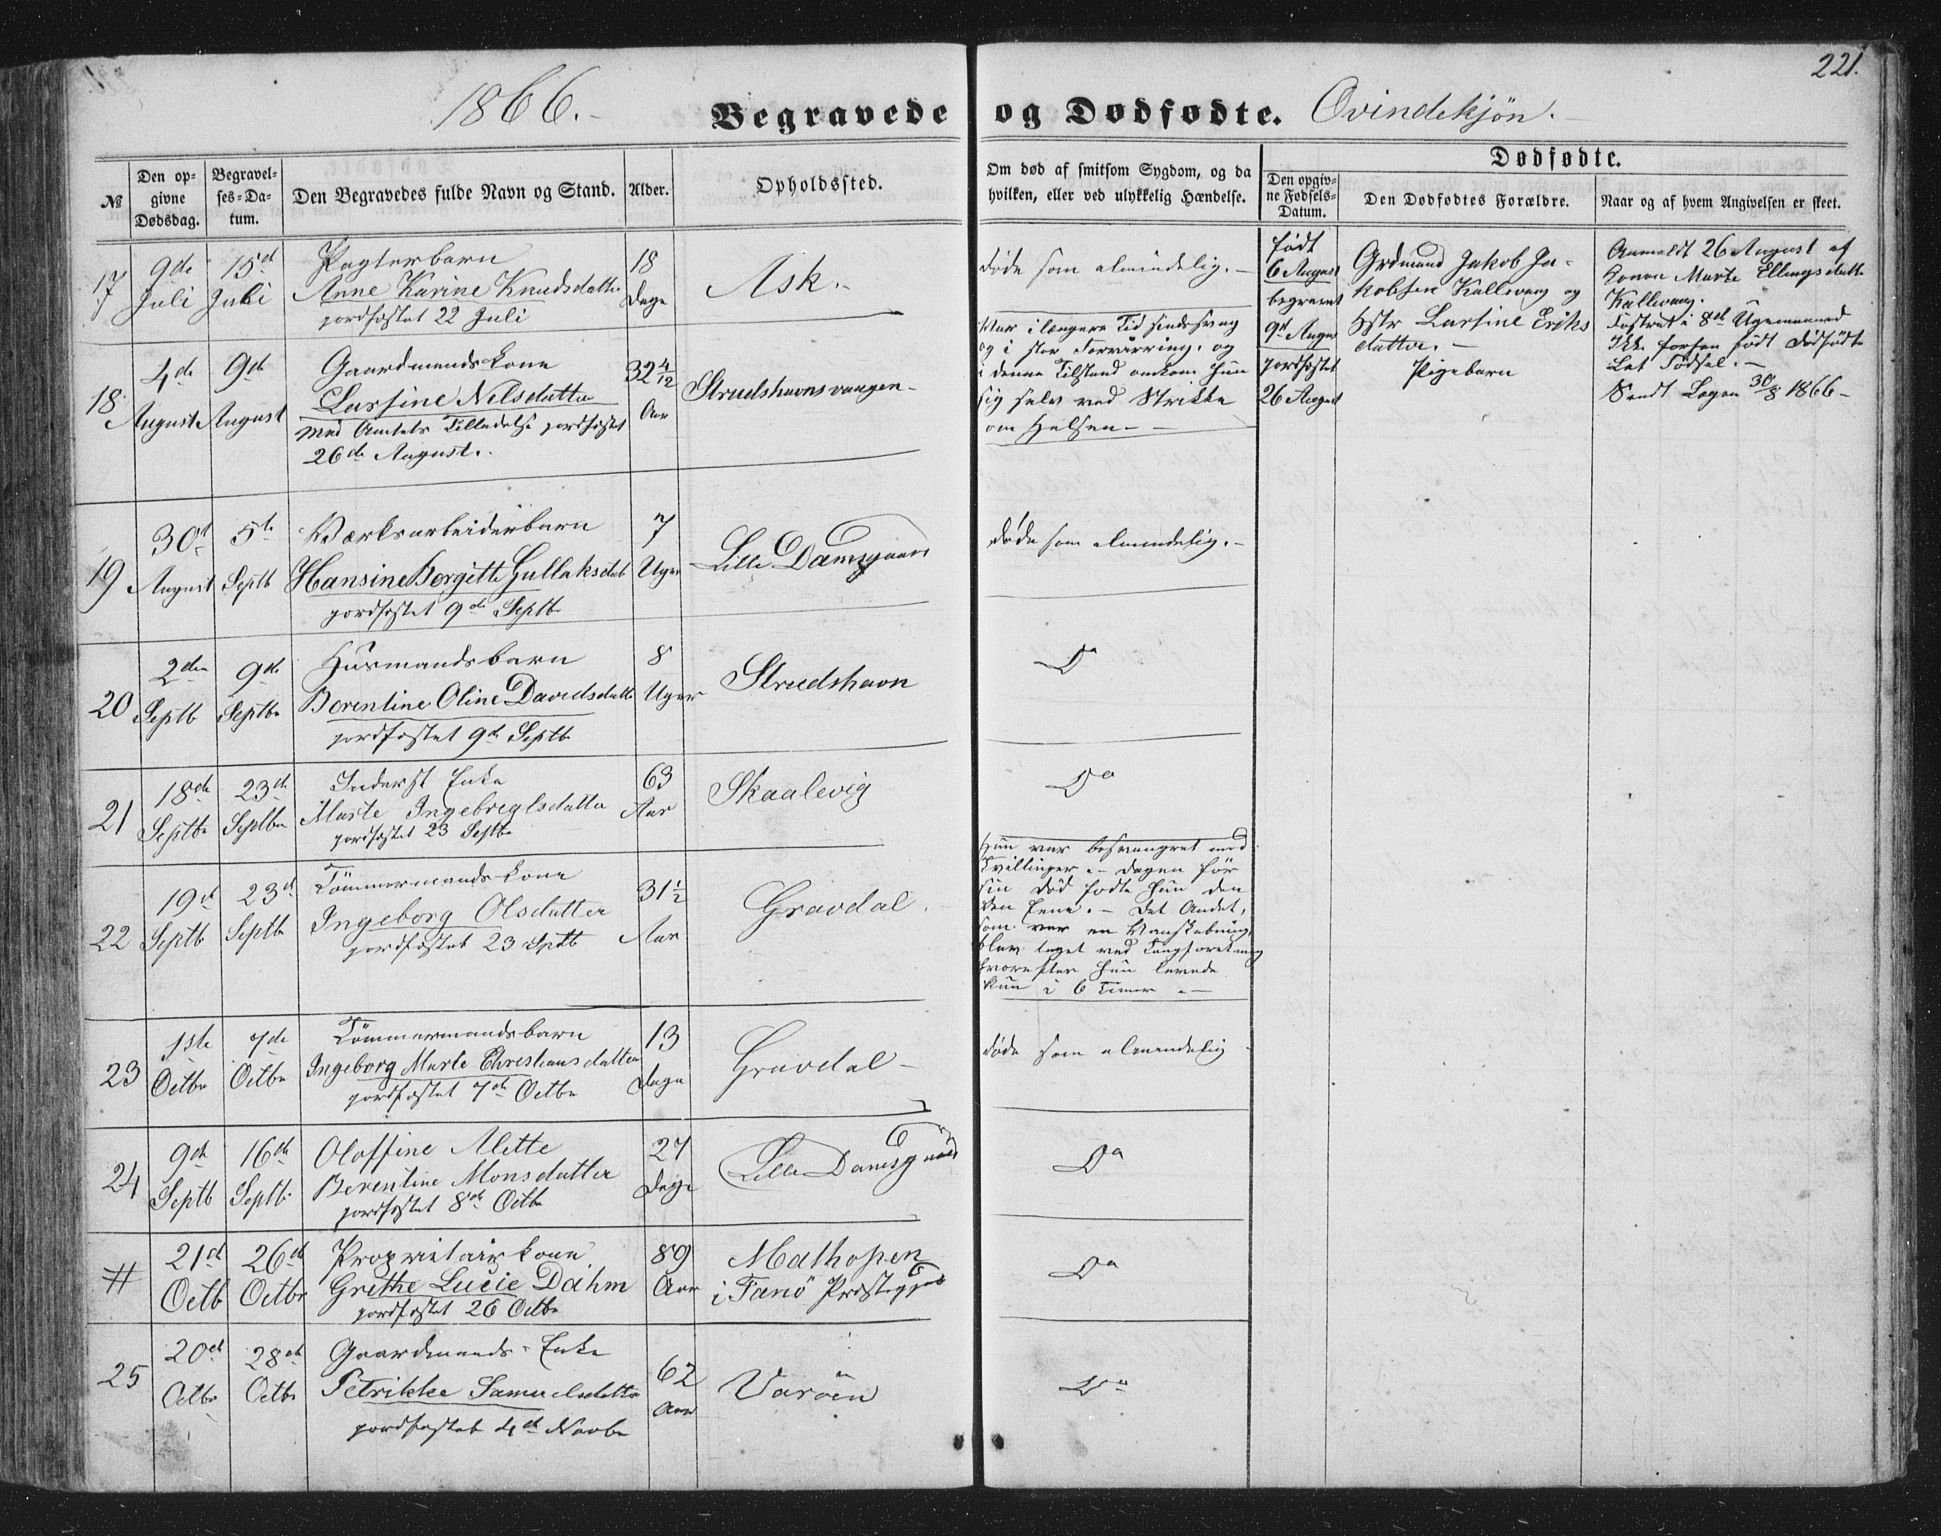 221.
1866.-
Begravede og Dødfødte. Qvindekjön.
№
Den opgivne Dødsdag.
Begravelses-Datum.
Den Begravedes fulde Navn og Stand.
Alder.
Opholdssted.
Om død af smitsom Sygdom, og da hvilken, eller ved ulykkelig Hændelse.
Dødfødte.
Den opgivne Fødsels-Datum.
Den Dødfødtes Forældre.
Naar og af hvem Angivelsen er skeet.
17
9de Juli
15d Juli
Pagterbarn
Anne Karine Knudsdatter
jordfæstet 22 Juli
18 Dage
Ask.-
døde som almindelig.-
født
6 August
begravet
9d August
jordfæstet
26 August
Jakob Ja-
kobsen Kallevaag og
Hstr Larsine Eriks
datter.-
Pigebarn
Anmeldt 26 August af
Konen Marte Ellingsdatter
Kallevaag.
født dødfødte
Let Fødsel.-
Sendt Logen 30/8 1866-
18
4de August
9de August
Gaardmandskone
Larsine Nilsdatter
Med Amtets Tilladelse jordfæstet
26de August.
32 4/12 Aar
Strudshavnsvaagen-
Var i længere Tid sindssvag
og i stor Forvirring, og
i denne Tilstand omkom hun
sig selv ved Strikke
om Halsen.-
19
30d August
5te Septb
Værksarbeiderbarn
Hansine Bergitte Gullaksdatt
jordfæstet 9de Septbr
7 Uger
Lille Damsgaard
døde som almindelig.-
20
2den Septb
9de Septbr
Husmandsbarn
Berentine Oline Davidsdatter
jordfæstet 9de Septbr
8 Uger
Strudshavn
Do
21
18de Septbr
23de Septbr
Inderst Enke
Marte Ingebregtsdatter
jordfæstet 23 Septbr
63 Aar
Skaalevig
Do
22
19d Septb
23d Septbr
Tömmermandskone
Ingeborg Olsdatter
jordfæstet 23 Septb
31 1/2 Aar
Gravdal.
Hun var besvangret med
Tvillinger.- Dagen før
sin Død fødte hun den
den Ene.- Det Andet,
som var en Vanskabning,
blev taget ved Tangforretning
hvorefter hun levede
kun i 6 Timer.-
23
1ste Octbr
7de Octbr
Tömmermandsbarn
Ingeborg Marte Christiansdatter
jordfæstet 7de Octbr
13 Dage
Gravdal-
døde som almindelig
24
9de Septb
16de Septb
Oloffine Alette
Berentine Monsdatter
jordfæstet 8de Octbr
27 Dage
Lille Damsgaard
Do
#
21d Octb
26de Octbr
Proprietairkone
Grethe Lucie Dahm
jordfæstet 26 Octbr
89 Aar
Mathopen
i Fanö Præstegjæld
Do
25
20de Octbr
28de Octbr
Gaardmands-Enke
Petrikke Samuelsdatter
jordfæstet 4de Novbr
62 Aar
Varöen
Do